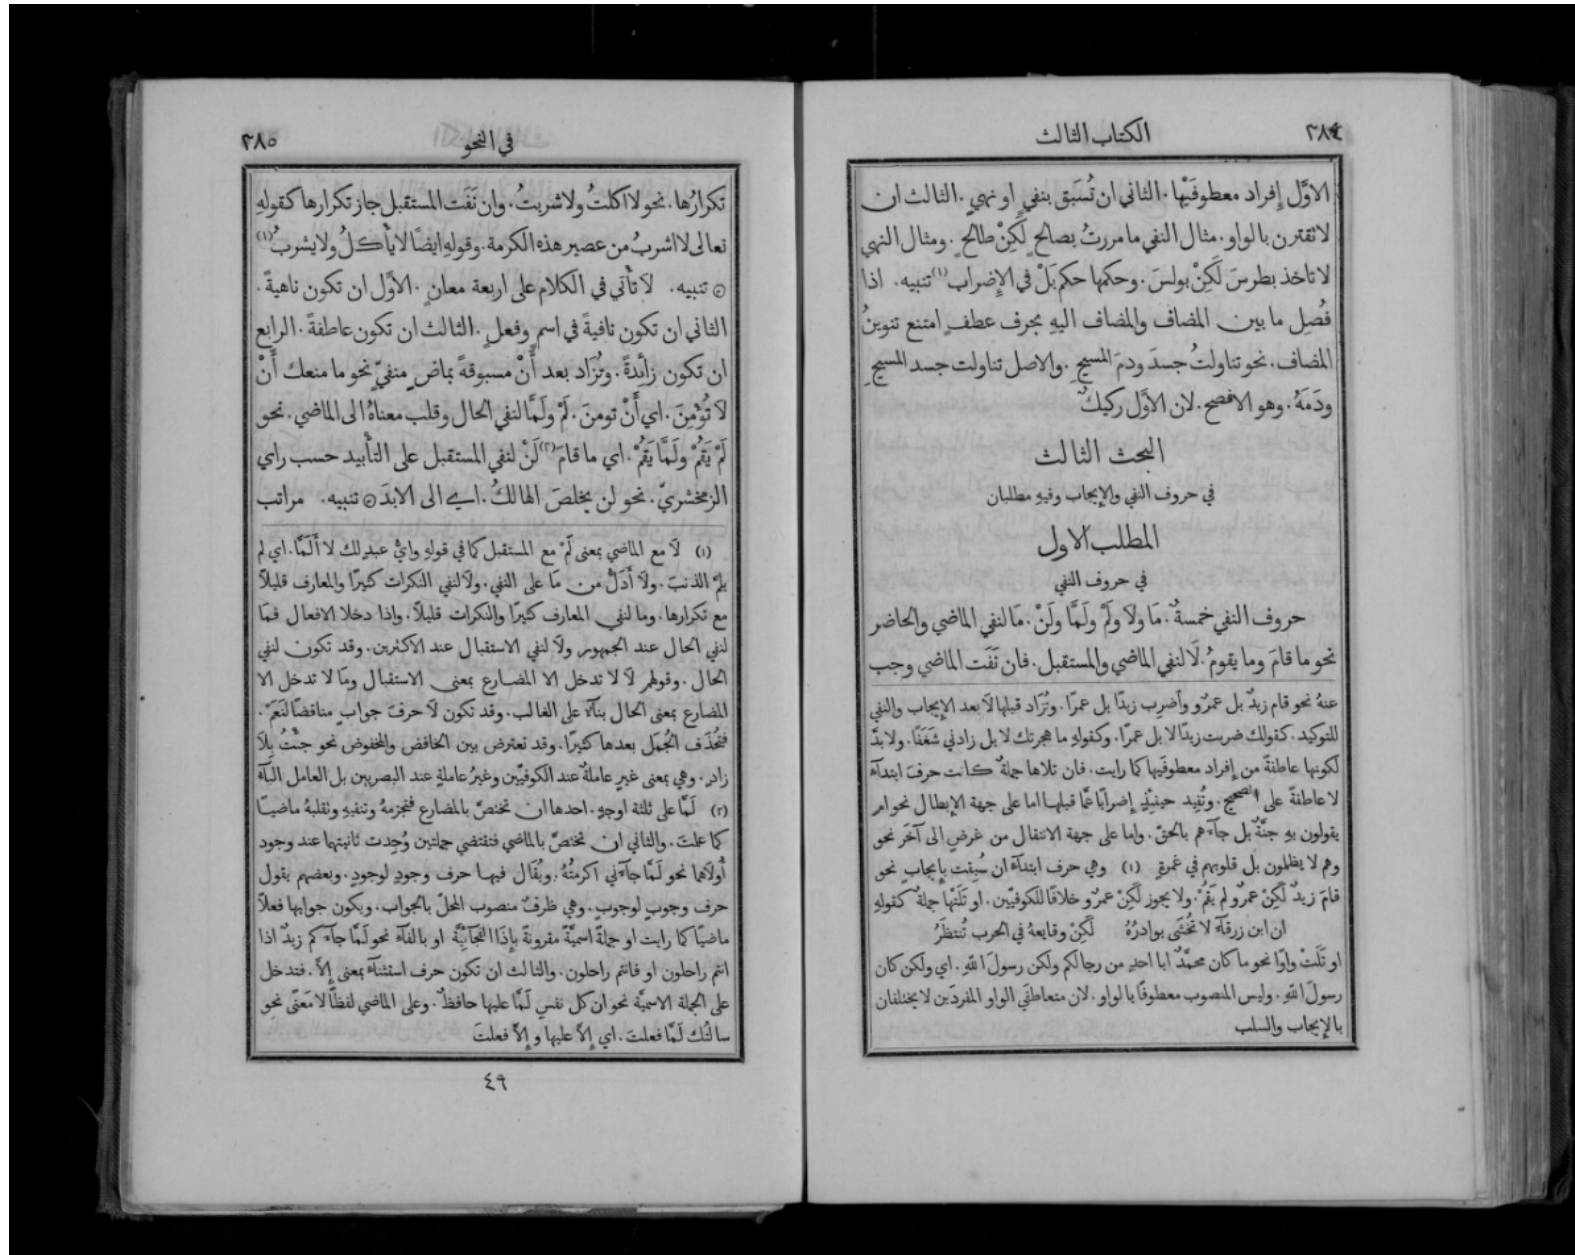 ٣٨٤
الكتاب الثالث
الاوَّل إِفراد معطوفَيْها. الثاني ان تُسبَق بنفيٍ او نهيٍ. الثالث ان
لا تقترن بالواو. مثال النفي ما مررتُ بصالحٍ لٰكِنْ طالحٍ. ومثال النهي
لا تاخذ بطرسَ لٰكِنْ بولسَ. وحكمها حكم بَلْ في الإِضراب (١) تنبيه. اذا
فُصِل ما بين المضاف والمضاف اليهِ بحرف عطفٍ امتنع تنوينُ
المضاف. نحو تناولتُ جسدَ ودمَ المسيحِ. والاصل تناولت جسد المسيحِ
ودَمَهُ. وهو الافصح. لان الاوَّل ركيكٌ
البحث الثالث
في حروف النفي والإِيجاب وفيهِ مطلبان
المطلب الاول
في حروف النفي
حروف النفي خمسةٌ. مَا ولَا ولَمْ ولَمَّا ولَنْ. مَا لنفي الماضي والحاضر
نحو ما قامَ وما يقومُ. لَا لنفي الماضي والمستقبل. فان نَفَت الماضي وجب
عنهُ نحو قام زيدٌ بل عمرٌو وأضرِب زيدًا بل عمرًا. وتُزَاد قبلها لَا بعد الإِيجاب والنفي
للتوكيد. كقولك ضربت زيدًا لا بل عمرًا. وكقولهِ ما هجرتك لا بل زادني شَغَفًا. ولا بدَّ
لكونها عاطفةً من إِفراد معطوفَيها كما رايت. فان تلاها جملةٌ كانت حرفَ ابتدآءٍ
لا عاطفةً على الصحيح. وتُفِيد حينئِذٍ إِضرابًا عمَّا قبلها اما على جهة الإِبطال نحو ام
يقولون بهِ جنَّةٌ بل جآءَهم بالحقّ. واما على جهة الانتقال من غرضٍ الى آخَر نحو
وهم لا يظلمون بل قلوبهم في غمرةٍ (١) وهي حرف ابتدآءٍ ان سُبِقت بإِيجابٍ نحو
قامَ زيدٌ لٰكِنْ عمرٌو لم يَقُمْ. ولا يجوز لٰكِنْ عمرٌو خلافًا للكوفيّين. او تَلَتْها جملةٌ كقولهِ
ان ابن زرقآءَ لا تُخشَى بوادرُهُ لٰكِنْ وقايعهُ في الحرب تُنتظَرُ
او تَلَتْ واوًا نحو ما كان محمَّدٌ ابا احدٍ من رجالكم ولكن رسولَ اللهِ. اي ولكن كان
رسولَ اللهِ. وليس المنصوب معطوفًا بالواو. لان متعاطفَي الواو المفردَين لا يختلفان
بالإِيجاب والسلب
٣٨٥
في النحو
تكرارُها. نحو لا اكلتُ ولا شربتُ. وان نَفَت المستقبل جاز تكرارها كقولهِ
تعالى لا اشربُ من عصير هذه الكرمة. وقولهِ ايضًا لا يأْكلُ ولا يشربُ (١)
۞ تنبيه. لَا تأْتي في الكلام على اربعة معانٍ. الاوَّل ان تكون ناهيةً.
الثاني ان تكون نافيةً في اسمٍ وفعلٍ. الثالث ان تكون عاطفةً. الرابع
ان تكون زائِدةً. وتُزَاد بعد أَنْ مسبوقةً بماضٍ منفيّ نحو ما منعك أَنْ
لَا تُؤْمِنَ. اي أَنْ تومنَ. لَمْ ولَمَّا لنفي الحال وقلب معناهُ الى الماضي. نحو
لَمْ يَقُمْ ولَمَّا يَقُمْ. اي ما قامَ (٢) لَنْ لنفي المستقبل على التأْبيد حسب راي
الزمخشريّ. نحو لن يخلصَ الهالكُ. اي الى الابدَ ۞ تنبيه. مراتب
(١) لَا مع الماضي بمعنى لَمْ مع المستقبل كما في قولهِ وايُّ عبدٍ لك لا أَلَمَّا. اي لم
يلمّ الذنبَ. ولَا أَدَلُّ من مَا على النفي. ولَا لنفي النكرات كثيرًا والمعارف قليلًا
مع تكرارها. وما لنفي المعارف كثيرًا والنكرات قليلًا. واذا دخلا الافعال فمَا
لنفي الحال عند الجمهور ولَا لنفي الاستقبال عند الاكثرين. وقد تكون لنفي
الحال. وقولهم لَا لا تدخل الا المضارع بمعنى الاستقبال ومَا لا تدخل الا
المضارع بمعنى الحال بنآءً على الغالب. وقد تكون لَا حرفَ جوابٍ مناقضًا لنَعَمْ.
فتُحذَف الجُمَل بعدها كثيرًا. وقد تعترض بين الخافض والمخفوض نحو جئْتُ بِلَا
زادٍ. وهي بمعنى غيرٍ عاملةٌ عند الكوفيّين وغيرُ عاملةٍ عند البصريين بل العامل البآءُ
(٢) لَمَّا على ثلثة اوجهٍ. احدها ان تختصَّ بالمضارع فتجزمهُ وتنفيهِ وتقلبهُ ماضيًا
كما علمتَ. والثاني ان تختصَّ بالماضي فتقتضي جملتين وُجِدت ثانيتهما عند وجود
أُولَاهما نحو لَمَّا جآءَني اكرمتُهُ. ويُقَال فيها حرف وجودٍ لوجودٍ. وبعضهم يقول
حرف وجوبٍ لوجوبٍ. وهي ظرفٌ منصوب المحلّ بالجواب. ويكون جوابها فعلًا
ماضيًا كما رايت او جملةً اسميَّةً مقرونةً بإِذَا الفُجَآئِيَّة او بالفآءِ نحو لَمَّا جآءَكم زيدٌ اذا
انتم راحلون او فانتم راحلون. والثالث ان تكون حرف استثنآءٍ بمعنى إِلَّا. فتدخل
على الجملة الاسميَّة نحو ان كل نفسٍ لَمَّا عليها حافظٌ. وعلى الماضي لفظًا لا مَعْنًى نحو
سالتُك لَمَّا فعلتَ. اي إِلَّا عليها و إِلَّا فعلتَ
٤٩